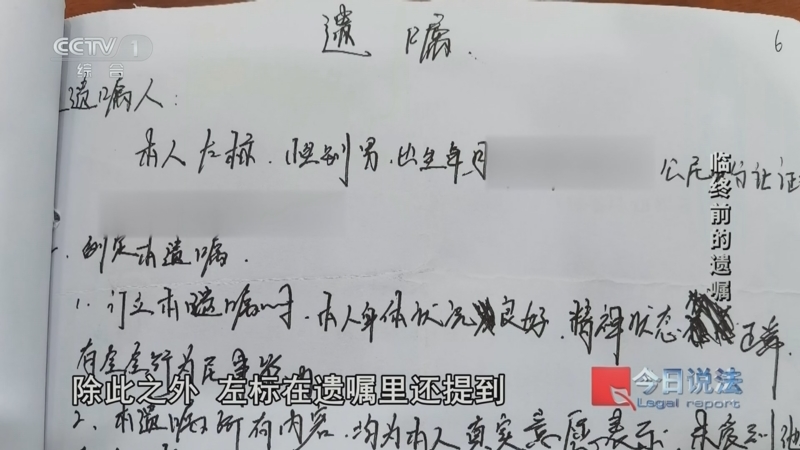 CCTV 1
综合
遗嘱.
6
遗嘱人:
本人左标.性别男.出生年月
公民身份证
制定本遗嘱.
1.订立本遗嘱时.本人身体状况良好.精神状态正常
有完全行为民事
2.本遗嘱所有内容.均为本人真实意愿表示.未受到
临终前的遗嘱
今日说法
Legal report
除此之外 左标在遗嘱里还提到